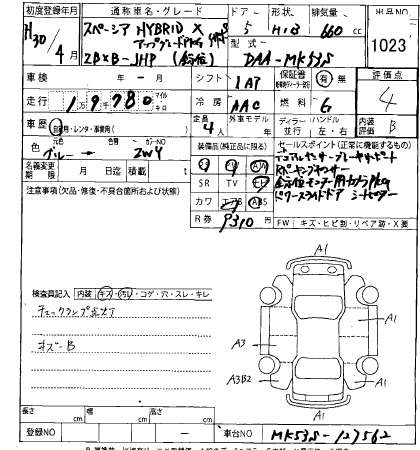 初度登録年月 通称車名・グレード ドア 形状 排気量 出品NO
H30/4月 スペーシア HYBRID X 5 H/B 660 cc 1023
アップグレードPKG
2BXB-JHP (全方位) 型式 DAA-MK53S
車検 年 - 月 シフト IAT 保証書 有・無 評価点 4
走行 1,9780 マイル キロ 冷房 AAC 燃料 G
車歴 自家用・レンタ・事業用( ) 定員 4人 外車モデル ディーラー/ハンドル 並行 左・右 内装 B
色 元色 ブルー → カラーNO ZWY 装備品(純正品に限る) セールスポイント(正常に機能するもの)
名義変更期限 月 日迄 積載 t PS PW
デュアルセンサーブレーキサポート
Rパーキングセンサー
注意事項(欠品・修復・不具合箇所および状態) SR TV ナビ 全方位モニター用カメラPKG
カワ エアB ABS パワースライドドア シートヒーター
R券 9310 円 FW キズ・ヒビ割・リペア跡・X要
A1
検査員記入 内装 キズ・汚レ・コゲ・穴・スレ・キレ
チェックランプ点灯
A1
A3 A1
キズ・B
A3B2
A1
長さ cm 幅 cm 高さ cm
登録NO 車台NO MK53S-127562